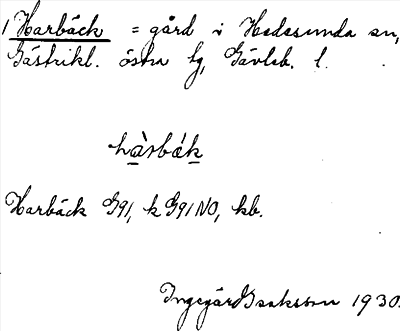 1 Harbäck = gård i Hedesunda sn,
Gästrikl. östra tg, Gävleb. l.
hàrbák
Harbäck G91, k G91NO, kb.
Ingegärd Isaksson 1930.